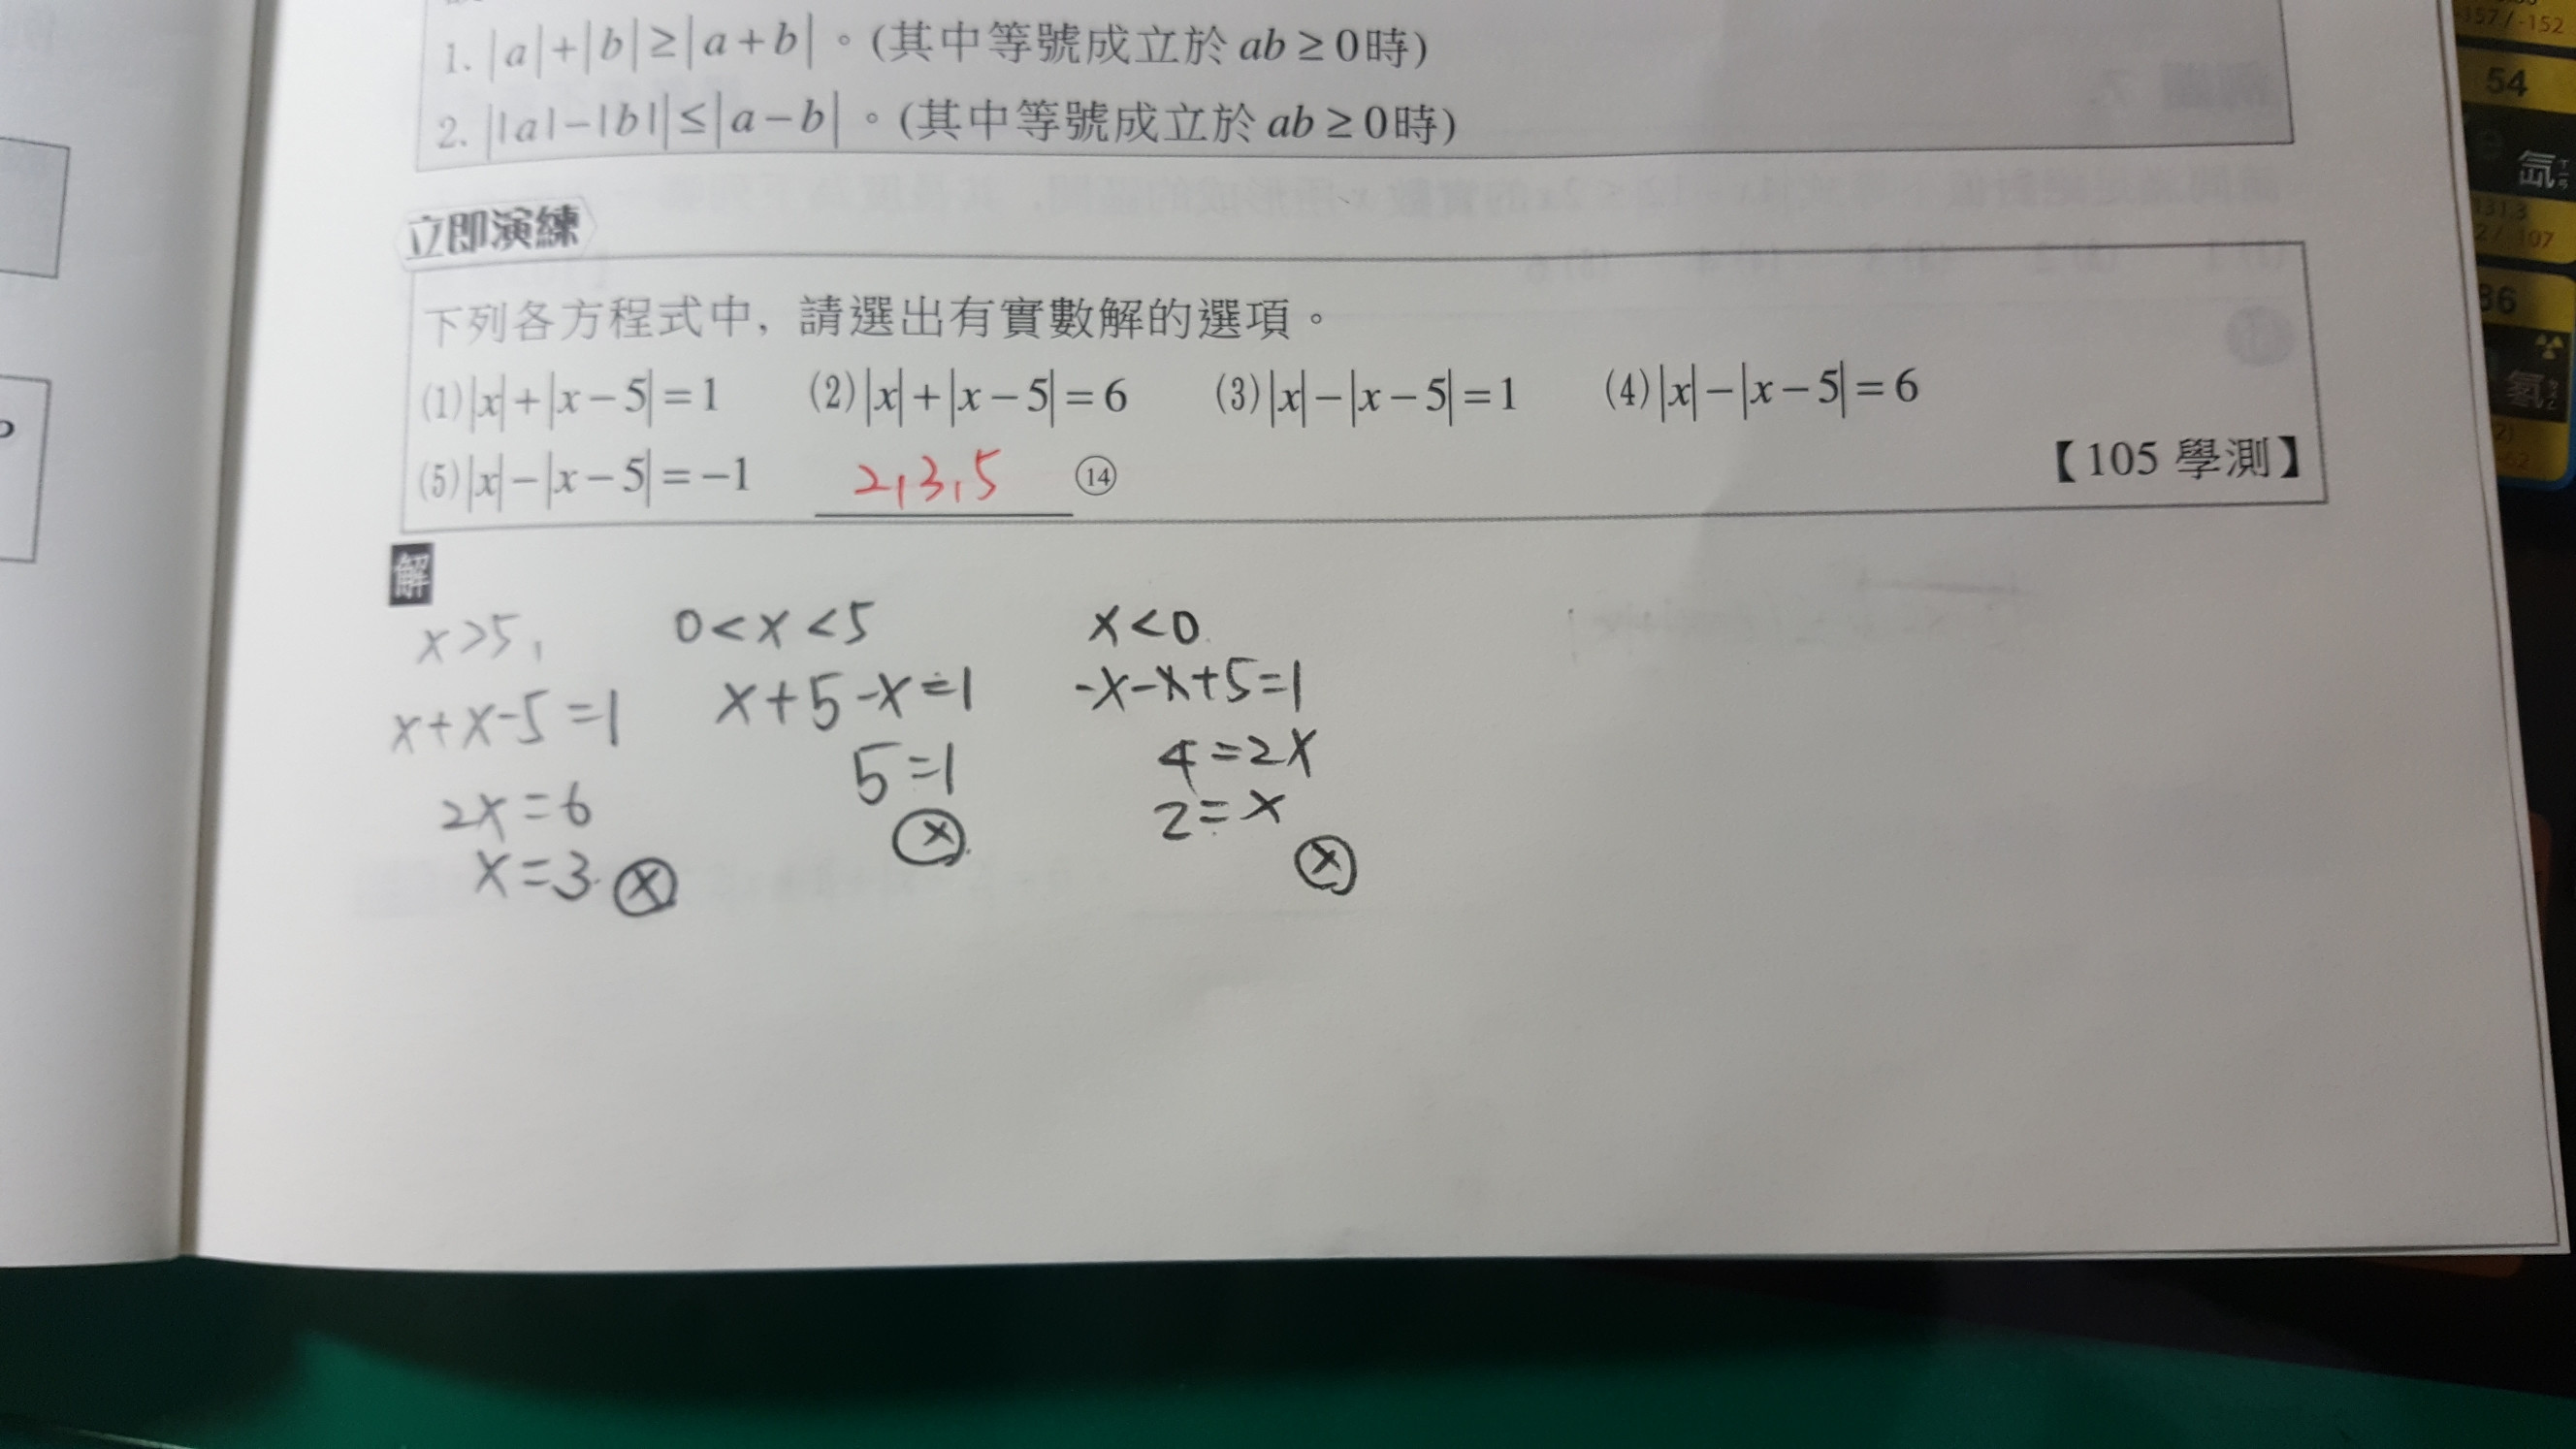 1. |a|+|b|≥|a+b|。(其中等號成立於 ab≥0時)
2. ||a|-|b||≤|a-b|。(其中等號成立於 ab≥0時)
立即演練
下列各方程式中, 請選出有實數解的選項。
(1)|x|+|x-5|=1 (2)|x|+|x-5|=6 (3)|x|-|x-5|=1 (4)|x|-|x-5|=6
(5)|x|-|x-5|=-1 2,3,5 ⑭ 【105 學測】
解
x>5, 0<x<5 x<0
x+x-5=1 x+5-x=1 -x-x+5=1
2x=6 5=1 4=2x
x=3 ⓧ ⓧ 2=x
ⓧ
54
氙
86
氡